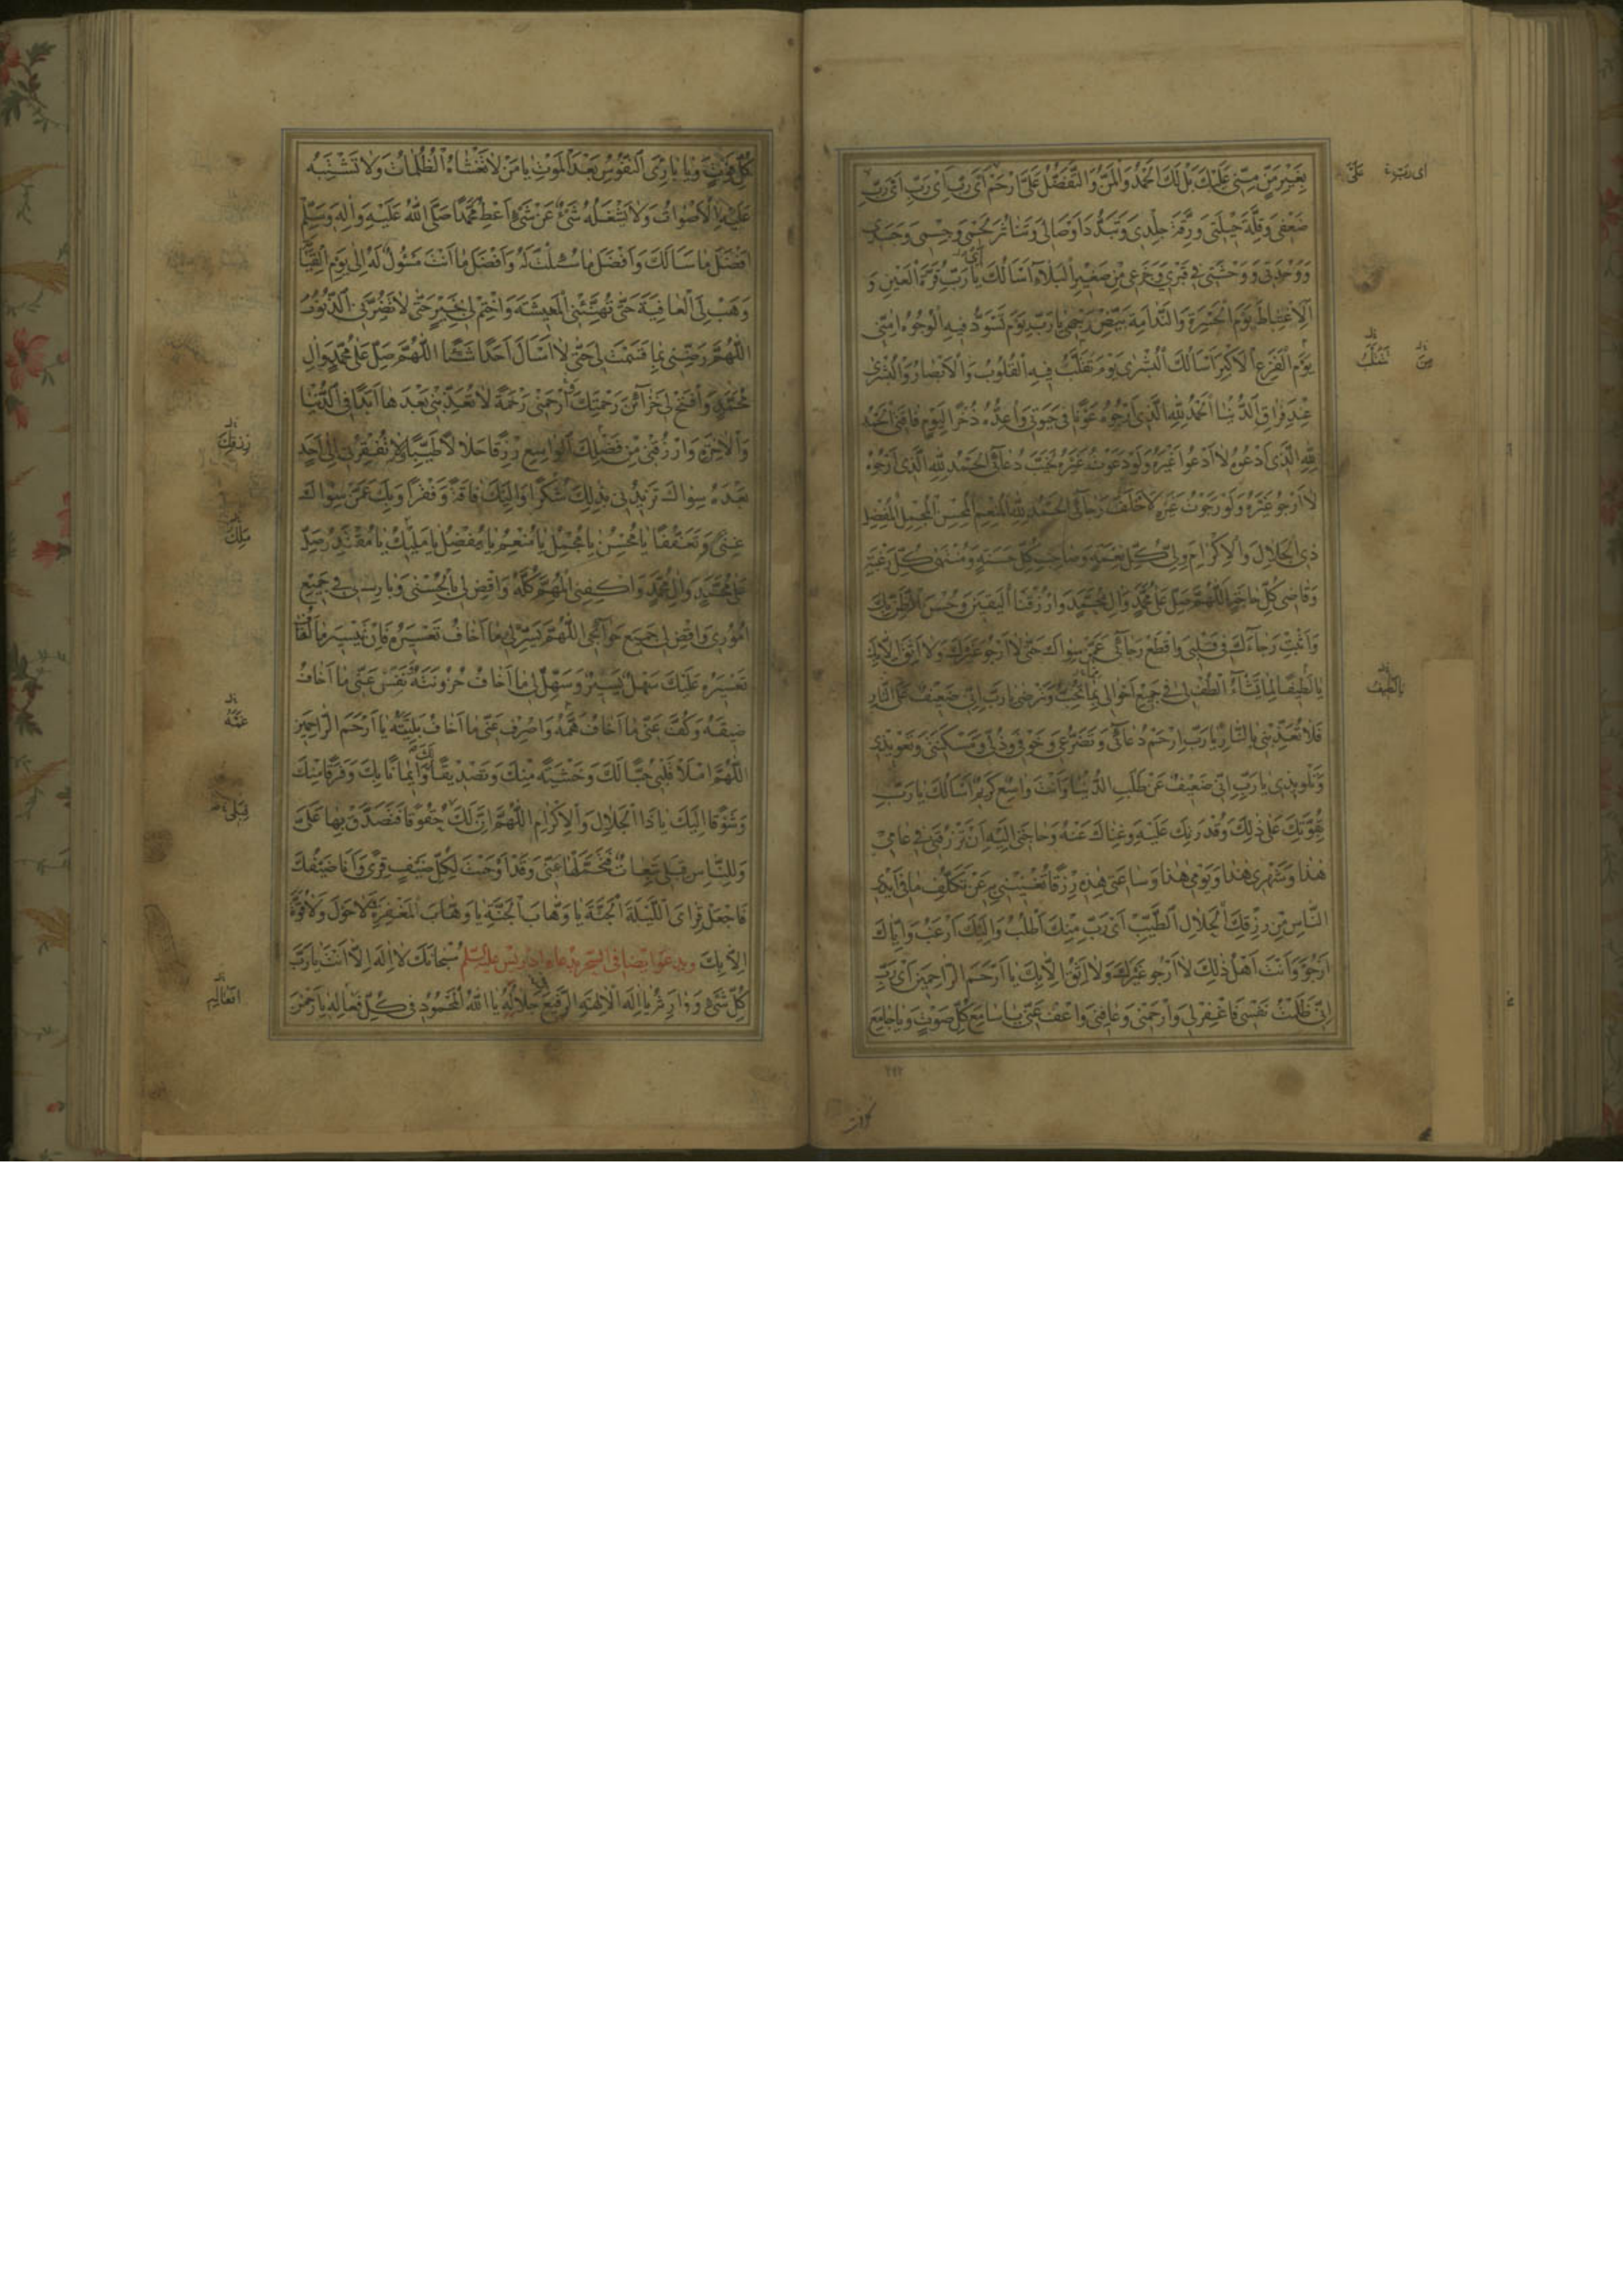 بِغَيْرِ مَنٍّ مِنِّي عَلَيْكَ بَلْ لَكَ الْحَمْدُ وَالْمَنُّ وَالتَّفَضُّلُ عَلَيَّ ارْحَمْ أَيْ رَبِّ أَيْ رَبِّ أَيْ رَبِّ
ضَعْفِي وَقِلَّةَ حِيلَتِي وَرِقَّةَ جِلْدِي وَتَبَدُّدَ أَوْصَالِي وَتَنَاثُرَ لَحْمِي وَجِسْمِي وَجَسَدِي
وَوَحْدَتِي وَوَحْشَتِي فِي قَبْرِي وَجَزَعِي مِنْ صَغِيرِ الْبَلَاءِ أَسْأَلُكَ يَا رَبِّ قُرَّةَ الْعَيْنِ وَ
الْاِغْتِبَاطَ يَوْمَ الْحَسْرَةِ وَالنَّدَامَةِ بَيِّضْ وَجْهِي يَا رَبِّ يَوْمَ تَسْوَدُّ فِيهِ الْوُجُوهُ آمِنِّي
يَوْمَ الْفَزَعِ الْأَكْبَرِ أَسْأَلُكَ الْبُشْرَى يَوْمَ تُقَلَّبُ فِيهِ الْقُلُوبُ وَالْأَبْصَارُ وَالْبُشْرَى
عِنْدَ فِرَاقِ الدُّنْيَا الْحَمْدُ لِلَّهِ الَّذِي أَرْجُوهُ عَوْنًا فِي حَيَوتِي وَأُعِدُّهُ ذُخْرًا لِيَوْمِ فَاقَتِي الْحَمْدُ
لِلَّهِ الَّذِي أَدْعُوهُ لَا أَدْعُوا غَيْرَهُ وَلَوْ دَعَوْتُ غَيْرَهُ لَخَيَّبَ دُعَائِي الْحَمْدُ لِلَّهِ الَّذِي أَرْجُوهُ
لَا أَرْجُو غَيْرَهُ وَلَوْ رَجَوْتُ غَيْرَهُ لَأَخْلَفَ رَجَائِي الْحَمْدُ لِلَّهِ الْمُنْعِمِ الْمُحْسِنِ الْمُجْمِلِ الْمُفْضِلِ
ذِي الْجَلَالِ وَالْإِكْرَامِ وَلِيُّ كُلِّ نِعْمَةٍ وَصَاحِبُ كُلِّ حَسَنَةٍ وَمُنْتَهَى كُلِّ رَغْبَةٍ
وَقَاضِي كُلِّ حَاجَةٍ اللَّهُمَّ صَلِّ عَلَى مُحَمَّدٍ وَآلِ مُحَمَّدٍ وَارْزُقْنَا الْيَقِينَ وَحُسْنَ الظَّنِّ بِكَ
وَأَثْبِتْ رَجَاءَكَ فِي قَلْبِي وَاقْطَعْ رَجَائِي عَمَّنْ سِوَاكَ حَتَّى لَا أَرْجُو غَيْرَكَ وَلَا أَثِقَ إِلَّا بِكَ
يَا لَطِيفًا لِمَا يَشَاءُ الْطُفْ لِي فِي جَمِيعِ أَحْوَالِي بِمَا تُحِبُّ وَتَرْضَى يَا رَبِّ إِنِّي ضَعِيفٌ عَلَى النَّارِ
فَلَا تُعَذِّبْنِي بِالنَّارِ يَا رَبِّ ارْحَمْ دُعَائِي وَتَضَرُّعِي وَخَوْفِي وَذُلِّي وَمَسْكَنَتِي وَتَعْوِيذِي
وَتَلْوِيذِي يَا رَبِّ إِنِّي ضَعِيفٌ عَنْ طَلَبِ الدُّنْيَا وَأَنْتَ وَاسِعٌ كَرِيمٌ أَسْأَلُكَ يَا رَبِّ
بِقُوَّتِكَ عَلَى ذَلِكَ وَقُدْرَتِكَ عَلَيْهِ وَغِنَاكَ عَنْهُ وَحَاجَتِي إِلَيْهِ أَنْ تَرْزُقَنِي فِي عَامِي
هَذَا وَشَهْرِي هَذَا وَيَوْمِي هَذَا وَسَاعَتِي هَذِهِ رِزْقًا تُغْنِينِي بِهِ عَنْ تَكَلُّفِ مَا فِي أَيْدِي
النَّاسِ مِنْ رِزْقِكَ الْحَلَالِ الطَّيِّبِ أَيْ رَبِّ مِنْكَ أَطْلُبُ وَإِلَيْكَ أَرْغَبُ وَإِيَّاكَ
أَرْجُو وَأَنْتَ أَهْلُ ذَلِكَ لَا أَرْجُو غَيْرَكَ وَلَا أَثِقُ إِلَّا بِكَ يَا أَرْحَمَ الرَّاحِمِينَ أَيْ رَبِّ
إِنِّي ظَلَمْتُ نَفْسِي فَاغْفِرْ لِي وَارْحَمْنِي وَعَافِنِي وَاعْفُ عَنِّي يَا سَامِعَ كُلِّ صَوْتٍ وَيَا جَامِعَ
أي رب
عليّ
من
تتقلب
يا لطيف
٢١٢
كُلِّ فَوْتٍ وَيَا بَارِئَ النُّفُوسِ بَعْدَ الْمَوْتِ يَا مَنْ لَا تَغْشَاهُ الظُّلُمَاتُ وَلَا تَشْتَبِهُ
عَلَيْهِ الْأَصْوَاتُ وَلَا يَشْغَلُهُ شَيْءٌ عَنْ شَيْءٍ أَعْطِ مُحَمَّدًا صَلَّى اللَّهُ عَلَيْهِ وَآلِهِ وَسَلَّمَ
أَفْضَلَ مَا سَأَلَكَ وَأَفْضَلَ مَا سُئِلْتَ لَهُ وَأَفْضَلَ مَا أَنْتَ مَسْئُولٌ لَهُ إِلَى يَوْمِ الْقِيَامَةِ
وَهَبْ لِيَ الْعَافِيَةَ حَتَّى تُهَنِّئَنِي الْمَعِيشَةَ وَاخْتِمْ لِي بِخَيْرٍ حَتَّى لَا تَضُرَّنِي الذُّنُوبُ
اللَّهُمَّ رَضِّنِي بِمَا قَسَمْتَ لِي حَتَّى لَا أَسْأَلَ أَحَدًا شَيْئًا اللَّهُمَّ صَلِّ عَلَى مُحَمَّدٍ وَآلِ
مُحَمَّدٍ وَافْتَحْ لِي خَزَائِنَ رَحْمَتِكَ وَارْحَمْنِي رَحْمَةً لَا تُعَذِّبْنِي بَعْدَهَا أَبَدًا فِي الدُّنْيَا
وَالْآخِرَةِ وَارْزُقْنِي مِنْ فَضْلِكَ الْوَاسِعِ رِزْقًا حَلَالًا طَيِّبًا وَلَا تُفْقِرْنِي إِلَى أَحَدٍ
بَعْدَهُ سِوَاكَ تَزِيدُنِي بِذَلِكَ شُكْرًا وَإِلَيْكَ فَاقَةً وَفَقْرًا وَبِكَ عَمَّنْ سِوَاكَ
غِنًى وَتَعَفُّفًا يَا مُحْسِنُ يَا مُجْمِلُ يَا مُنْعِمُ يَا مُفْضِلُ يَا مَلِيكُ يَا مُقْتَدِرُ صَلِّ
عَلَى مُحَمَّدٍ وَآلِ مُحَمَّدٍ وَاكْفِنِي الْمُهِمَّ كُلَّهُ وَاقْضِ لِي بِالْحُسْنَى وَبَارِكْ لِي فِي جَمِيعِ
أُمُورِي وَاقْضِ لِي جَمِيعَ حَوَائِجِي اللَّهُمَّ يَسِّرْ لِي مَا أَخَافُ تَعْسِيرَهُ فَإِنَّ تَيْسِيرَ مَا أَخَافُ
تَعْسِيرَهُ عَلَيْكَ سَهْلٌ يَسِيرٌ وَسَهِّلْ لِي مَا أَخَافُ حُزُونَتَهُ وَنَفِّسْ عَنِّي مَا أَخَافُ
ضِيقَهُ وَكُفَّ عَنِّي مَا أَخَافُ هَمَّهُ وَاصْرِفْ عَنِّي مَا أَخَافُ بَلِيَّتَهُ يَا أَرْحَمَ الرَّاحِمِينَ
اللَّهُمَّ امْلَأْ قَلْبِي حُبًّا لَكَ وَخَشْيَةً مِنْكَ وَتَصْدِيقًا لَكَ وَإِيمَانًا بِكَ وَفَرَقًا مِنْكَ
وَشَوْقًا إِلَيْكَ يَا ذَا الْجَلَالِ وَالْإِكْرَامِ اللَّهُمَّ إِنَّ لَكَ حُقُوقًا فَتَصَدَّقْ بِهَا عَلَيَّ
وَلِلنَّاسِ قِبَلِي تَبِعَاتٌ فَتَحَمَّلْهَا عَنِّي وَقَدْ أَوْجَبْتَ لِكُلِّ ضَيْفٍ قِرًى وَأَنَا ضَيْفُكَ
فَاجْعَلْ قِرَايَ اللَّيْلَةَ الْجَنَّةَ يَا وَهَّابَ الْجَنَّةِ يَا وَهَّابَ الْمَغْفِرَةِ لَا حَوْلَ وَلَا قُوَّةَ
إِلَّا بِكَ ويدعو ايضا في السحر بدعاء ادريس عليه السلم سُبْحَانَكَ لَا إِلَهَ إِلَّا أَنْتَ يَا رَبَّ
كُلِّ شَيْءٍ وَوَارِثَهُ يَا إِلَهَ الْآلِهَةِ الرَّفِيعَ جَلَالُهُ يَا اللَّهُ الْمَحْمُودُ فِي كُلِّ فَعَالِهِ يَا رَحْمَنَ
رزقك
ملك
غمه
قبلي